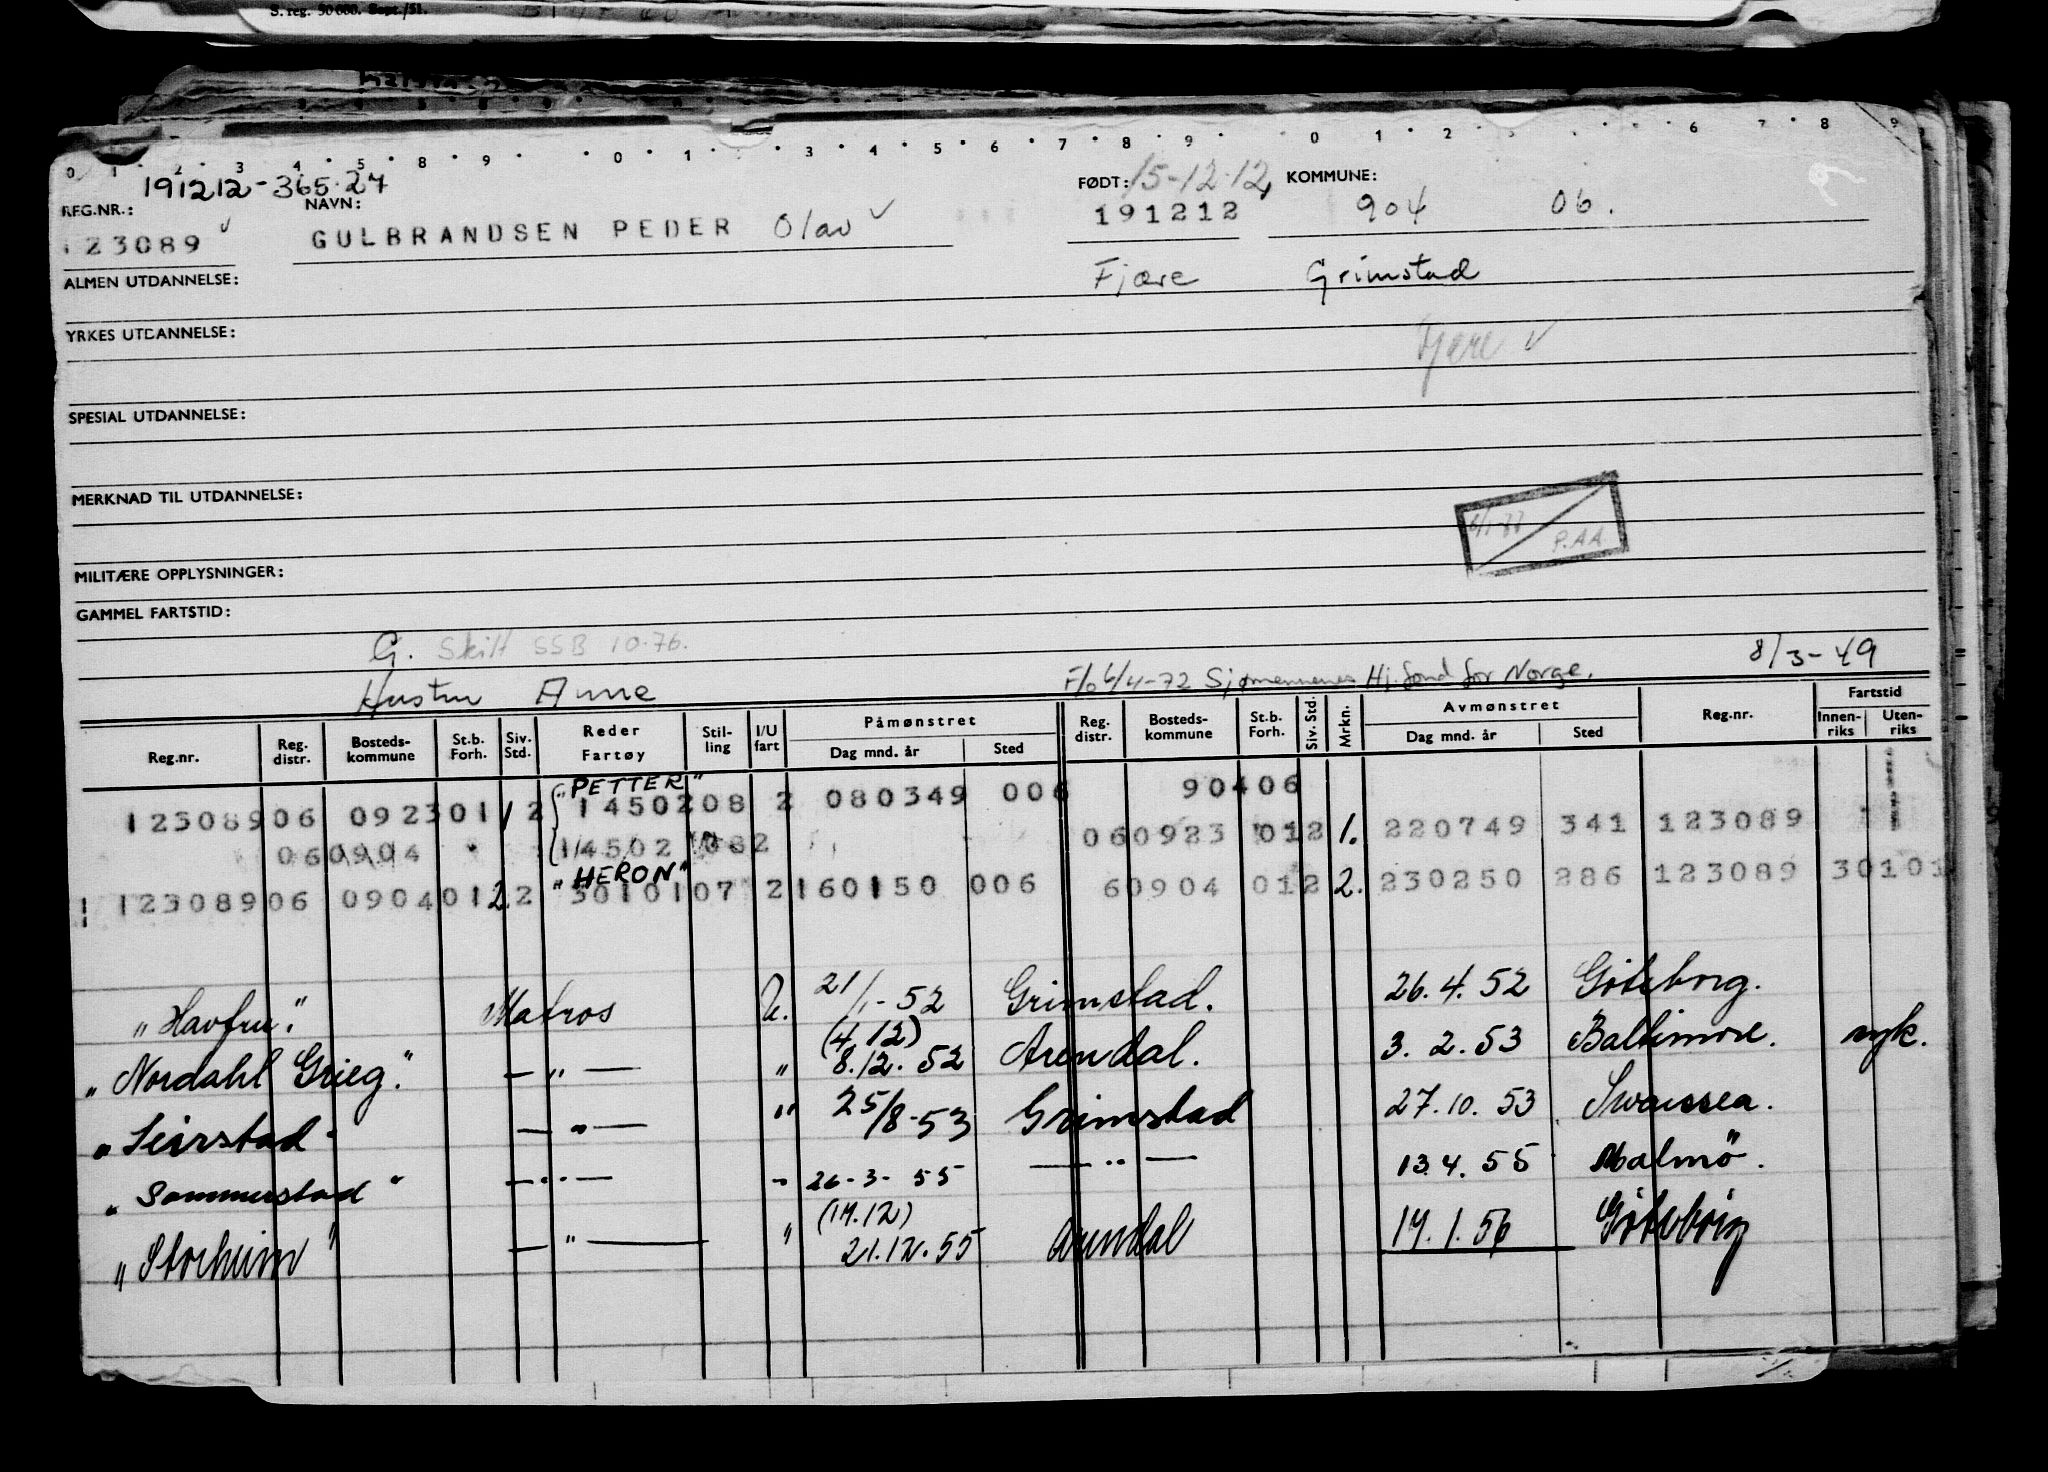 S. reg. 50 000. Sept./51.
0 1 2 3 4 5 8 9 0 1 3 4 5 6 7 8 9 0 1 2 6 7 8 9
191212-365.27
FØDT: 15-12-12, KOMMUNE:
REG.NR.: NAVN: 191212 904 06.
123089 GULBRANDSEN PEDER Olav
ALMEN UTDANNELSE: Fjære Grimstad
YRKES UTDANNELSE: Fjære
SPESIAL UTDANNELSE:
MERKNAD TIL UTDANNELSE:
P.AA
MILITÆRE OPPLYSNINGER:
GAMMEL FARTSTID:
G. Skilt SSB 10-76.
Hustru Anne F/o 6/4-72 Sjømennenes Hj.fond for Norge. 8/3-49
Reg.nr. Reg. distr. Bosteds- kommune St.b. Forh. Siv. Std. Reder Fartøy Stil- ling I/U fart Påmønstret Dag mnd. år Sted Reg. distr. Bosteds- kommune St.b. Forh. Siv. Std. Mrkn. Avmønstret Dag mnd. år Sted Reg.nr. Fartstid Innen- riks Uten- riks
"PETTER"
12308906 092301 12 1450208 2 080349 006 90406
060904 14502 082 060923 012 1. 220749 341 123089
"HERON"
12308906 0904012.2 3010107 2 160150 006 60904 012 2. 230250 286 123089 30101
"Havfru." Matros U. 21/1-52 Grimstad. 26.4.52 Göteborg.
"Nordahl Grieg." — " — " (4.12) 8.12.52 Arendal. 3.2.53 Baltimore. syk.
"Seirstad" — " — " 25/8-53 Grimstad 27.10.53 Swansea.
"Sommerstad" — " — " 26-3-55 — " — 13.4.55 Malmö.
"Storheim" — " — " (14.12) 21.12.55 Arendal 14.1.56 Göteborg